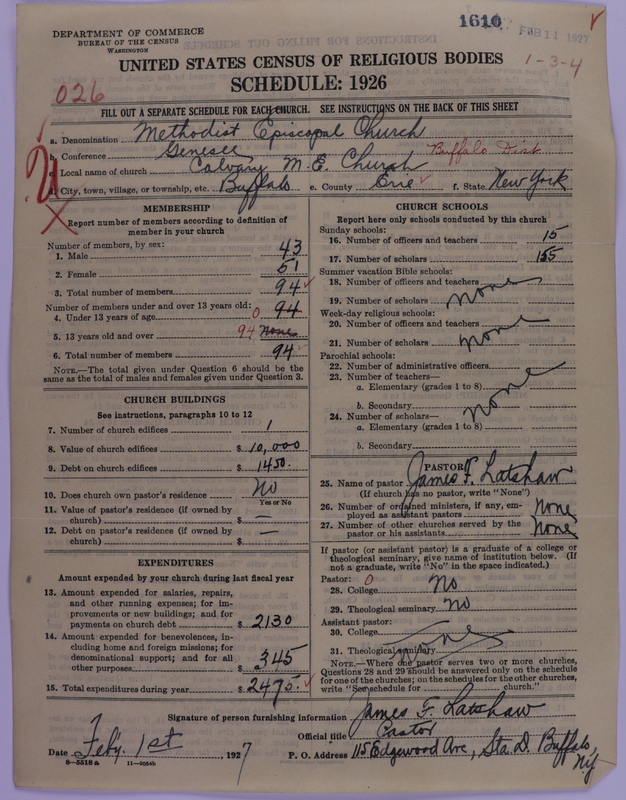 1610 FEB 11 1927
DEPARTMENT OF COMMERCE
BUREAU OF THE CENSUS
WASHINGTON
UNITED STATES CENSUS OF RELIGIOUS BODIES
1-3-4
SCHEDULE: 1926
026
FILL OUT A SEPARATE SCHEDULE FOR EACH CHURCH. SEE INSTRUCTIONS ON THE BACK OF THIS SHEET
a. Denomination Methodist Episcopal Church
b. Conference Genesee Buffalo Dist
c. Local name of church Calvary M.E. Church
d. City, town, village, or township, etc. Buffalo e. County Erie f. State New York
MEMBERSHIP
Report number of members according to definition of
member in your church
Number of members, by sex:
1. Male 43
2. Female 51
3. Total number of members 94
Number of members under and over 13 years old:
4. Under 13 years of age 0 94
5. 13 years old and over 94 None
6. Total number of members 94
NOTE.—The total given under Question 6 should be
same as the total of males and females given under Question 3.
CHURCH BUILDINGS
See instructions, paragraphs 10 to 12
7. Number of church edifices 1
8. Value of church edifices $ 10,000
9. Debt on church edifices $ 1450.
10. Does church own pastor's residence No
Yes or No
11. Value of pastor's residence (if owned by
church) $ —
12. Debt on pastor's residence (if owned by
church) $ —
EXPENDITURES
Amount expended by your church during last fiscal year
13. Amount expended for salaries, repairs,
and other running expenses; for im-
provements or new buildings; and for
payments on church debt $ 2130
14. Amount expended for benevolences, in-
cluding home and foreign missions; for
denominational support; and for all
other purposes $ 345
15. Total expenditures during year $ 2475.
CHURCH SCHOOLS
Report here only schools conducted by this church
Sunday schools:
16. Number of officers and teachers 15
17. Number of scholars 155
Summer vacation Bible schools:
18. Number of officers and teachers
19. Number of scholars none
Week-day religious schools:
20. Number of officers and teachers
21. Number of scholars none
Parochial schools:
22. Number of administrative officers
23. Number of teachers—
a. Elementary (grades 1 to 8)
b. Secondary none
24. Number of scholars—
a. Elementary (grades 1 to 8)
b. Secondary
PASTOR
25. Name of pastor James F. Latshaw
(If church has no pastor, write "None")
26. Number of ordained ministers, if any, em-
ployed as assistant pastors None
27. Number of other churches served by the
pastor or his assistants None
If pastor (or assistant pastor) is a graduate of a college or
theological seminary, give name of institution below. (If
not a graduate, write "No" in the space indicated.)
Pastor: 0
28. College No
29. Theological seminary No
Assistant pastor:
30. College
31. Theological seminary none
NOTE.—Where one pastor serves two or more churches,
Questions 28 and 29 should be answered only on the schedule
for one of the churches; on the schedules for the other churches,
write "See schedule for church."
Signature of person furnishing information James F. Latshaw
Official title Pastor
Date Feby. 1st, 1927 P. O. Address 115 Edgewood Ave, Sta. D. Buffalo,
NY
8-5518a 11-9054b